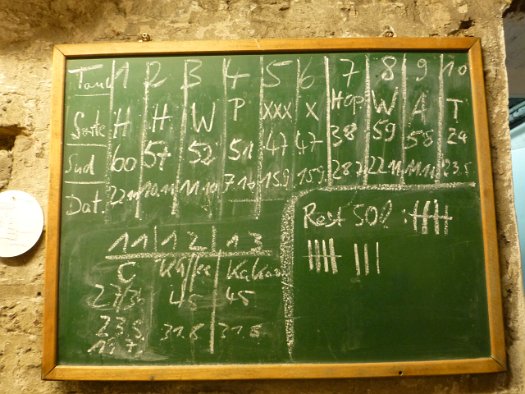 Tank 1 2 3 4 5 6 7 8 9 10
Sorte H H W P XXX X Hop W A T
Sud 60 57 52 51 47 47 38 59 58 24
Dat. 22.11 10.11 11.10 7.10 15.9 15.9 28.7 22.11 11.11 23.5
Rest 50l :
11 12 13
C Kaffee Kakao
45 45
23.5 31.8 31.8
19.7